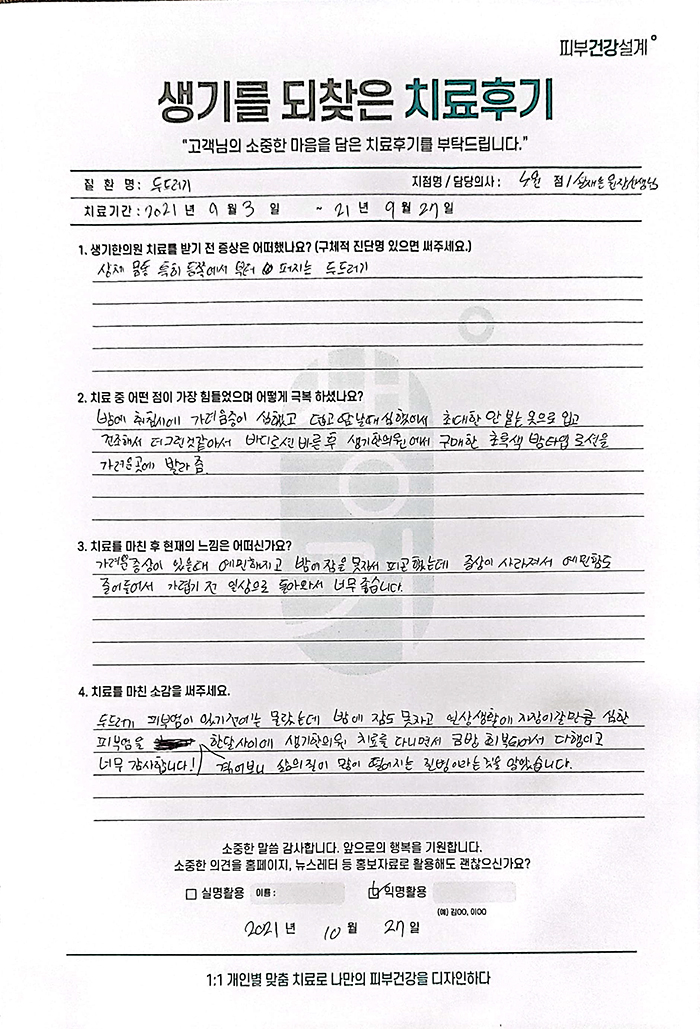 피부건강설계°
생기를 되찾은 치료후기
"고객님의 소중한 마음을 담은 치료후기를 부탁드립니다."
질 환 명 : 두드러기 지점명 / 담당의사 : 노원 점 / 원장선생님
치료기간 : 2021 년 9 월 3 일 ~ 21 년 9 월 27 일
1. 생기한의원 치료를 받기 전 증상은 어떠했나요? (구체적 진단명 있으면 써주세요.)
상체 몸통 특히 등쪽에서 부터 퍼지는 두드러기
2. 치료 중 어떤 점이 가장 힘들었으며 어떻게 극복 하셨나요?
밤에 취침시에 가려움증이 심했고 덥고 땀날때 심했어서 최대한 안 붙는 옷으로 입고
건조해서 더 그런것같아서 바디로션 바른 후 생기한의원에서 구매한 초록색 밤타입 로션을
가려운곳에 발라 줌.
3. 치료를 마친 후 현재의 느낌은 어떠신가요?
가려운증상이 있을때 예민해지고 밤에 잠을 못자서 피곤했는데 증상이 사라져서 예민함도
줄어들어서 가렵기 전 일상으로 돌아와서 너무 좋습니다.
4. 치료를 마친 소감을 써주세요.
두드러기 피부염이 있기전에는 몰랐는데 밤에 잠도 못자고 일상생활에 지장이갈만큼 심한
피부염을 한달사이에 생기한의원 치료를 다니면서 금방 회복되어서 다행이고
너무 감사합니다! 겪어보니 삶의질이 많이 떨어지는 질병이라는것을 알았습니다.
소중한 말씀 감사합니다. 앞으로의 행복을 기원합니다.
소중한 의견을 홈페이지, 뉴스레터 등 홍보자료로 활용해도 괜찮으신가요?
실명활용 이름 : 익명활용
(예) 김OO, 이OO
2021 년 10 월 27 일
1:1 개인별 맞춤 치료로 나만의 피부건강을 디자인하다